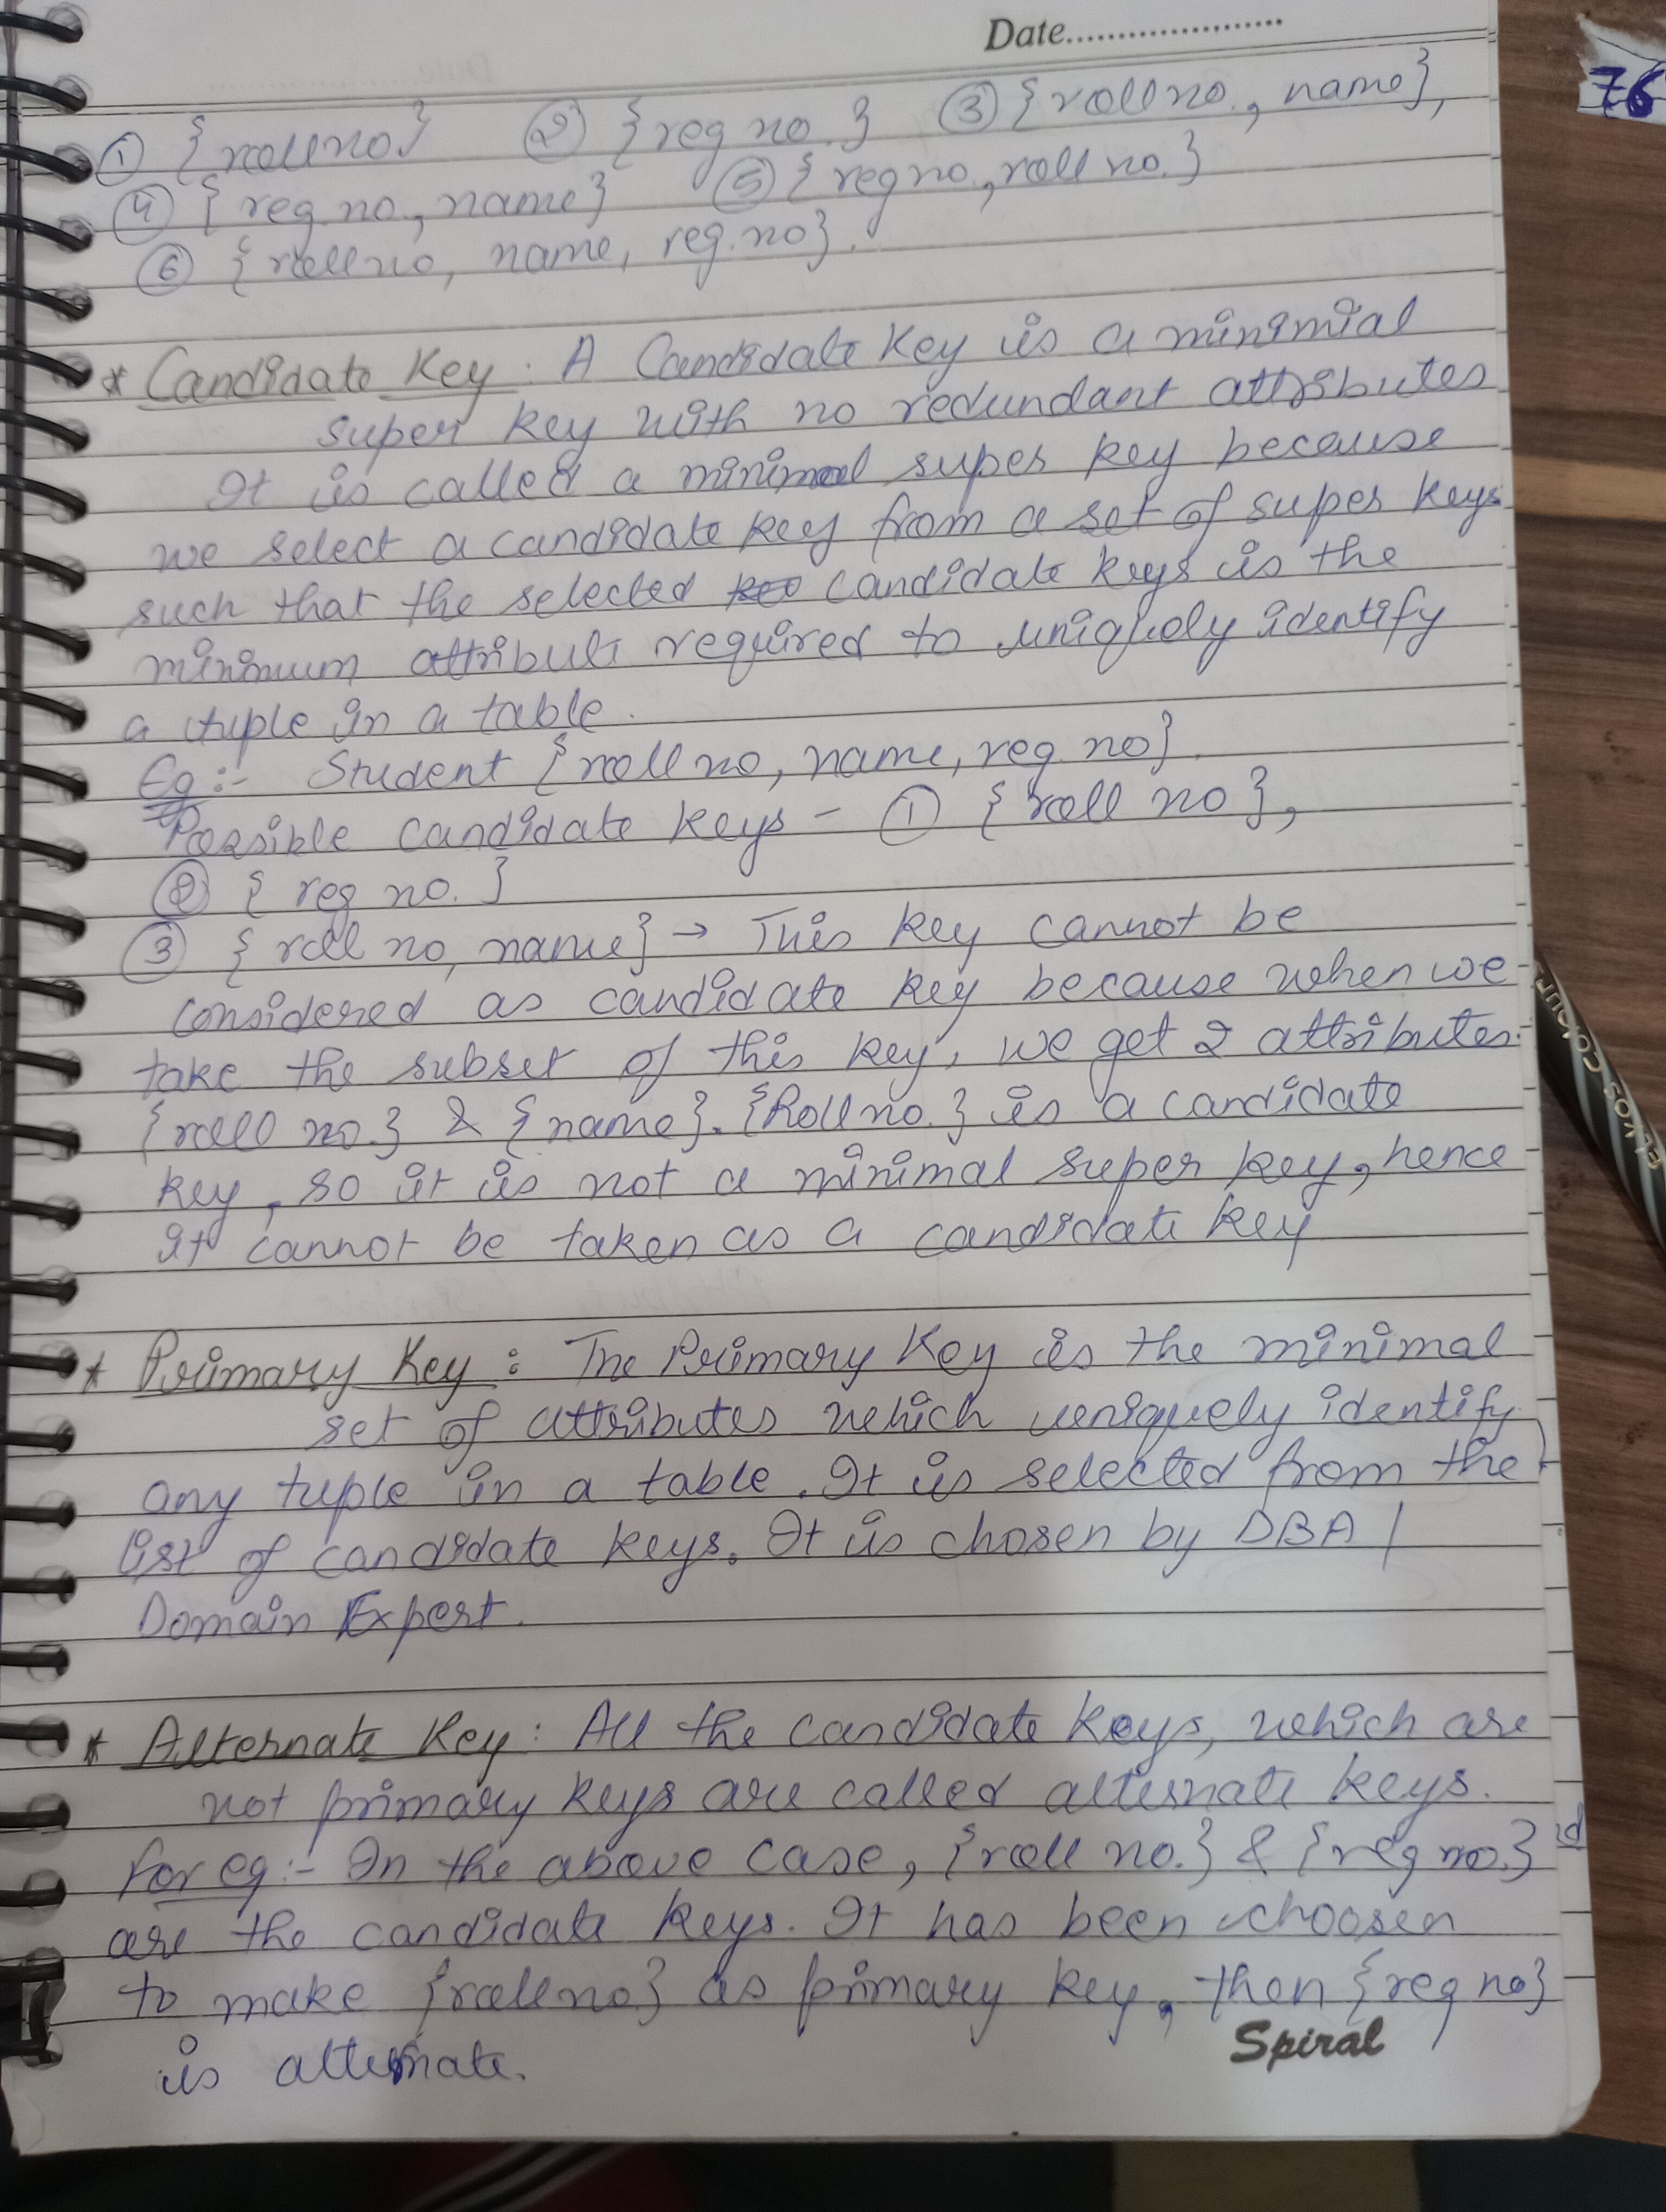 Date......................
76
① {rollno} ② {reg no.} ③ {rollno., name},
④ { reg.no., name} ⑤ {regno., roll no.}
⑥ {rollno, name, reg.no}.
* Candidate Key. A Candidate Key is a minimial
super key with no redundant attributes
It is called a minimal super key because
we select a candidate key from a set of super keys
such that the selected candidate keys is the
minimum attribute required to uniquely identify
a tuple in a table.
Eg:- Student {roll no, name, reg no}.
Possible candidate keys - ① {roll no},
② { reg no. }
③ { roll no, name} → This key cannot be
considered as candidate key because when we
take the subset of this key, we get 2 attributes.
{roll no.} & {name}. {Roll no.} is a candidate
key, so it is not a minimal super key, hence
it cannot be taken as a candidate key
* Primary Key : The Primary Key is the minimal
set of attributes which uniquely identify
any tuple in a table. It is selected from the
list of candidate keys. It is chosen by DBA /
Domain Expert.
* Alternate Key : All the candidate keys, which are
not primary keys are called alternate keys.
For eg:- In the above case, {roll no.} & {reg no.}
are the candidate keys. It has been choosen
to make {rollno} as primary key, then {reg no}
is alternate.
Spiral